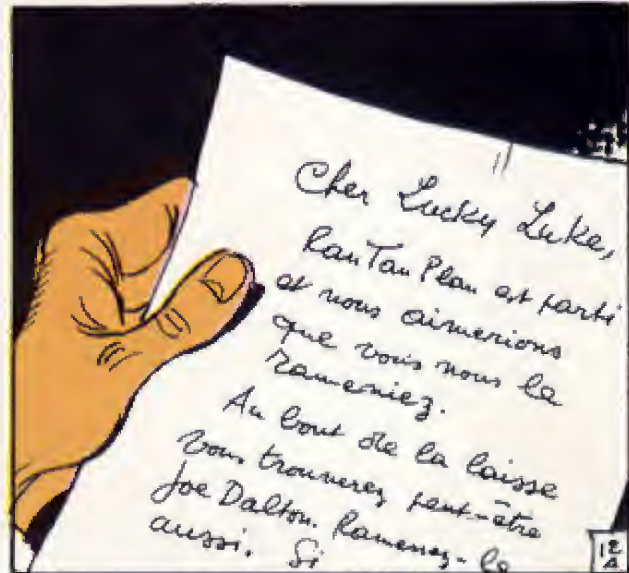 Cher Lucky Luke,
RanTanPlan est parti
et nous aimerions
que vous nous le
rameniez.
Au bout de la laisse
vous trouverez peut-être
Joe Dalton. Ramenez-le
aussi. Si
12
A